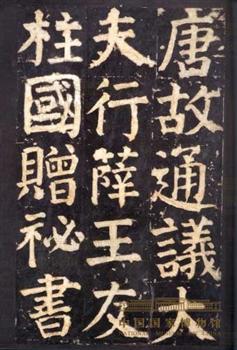 唐故通議大
夫行薛王友
柱國贈祕書
中国国家博物馆